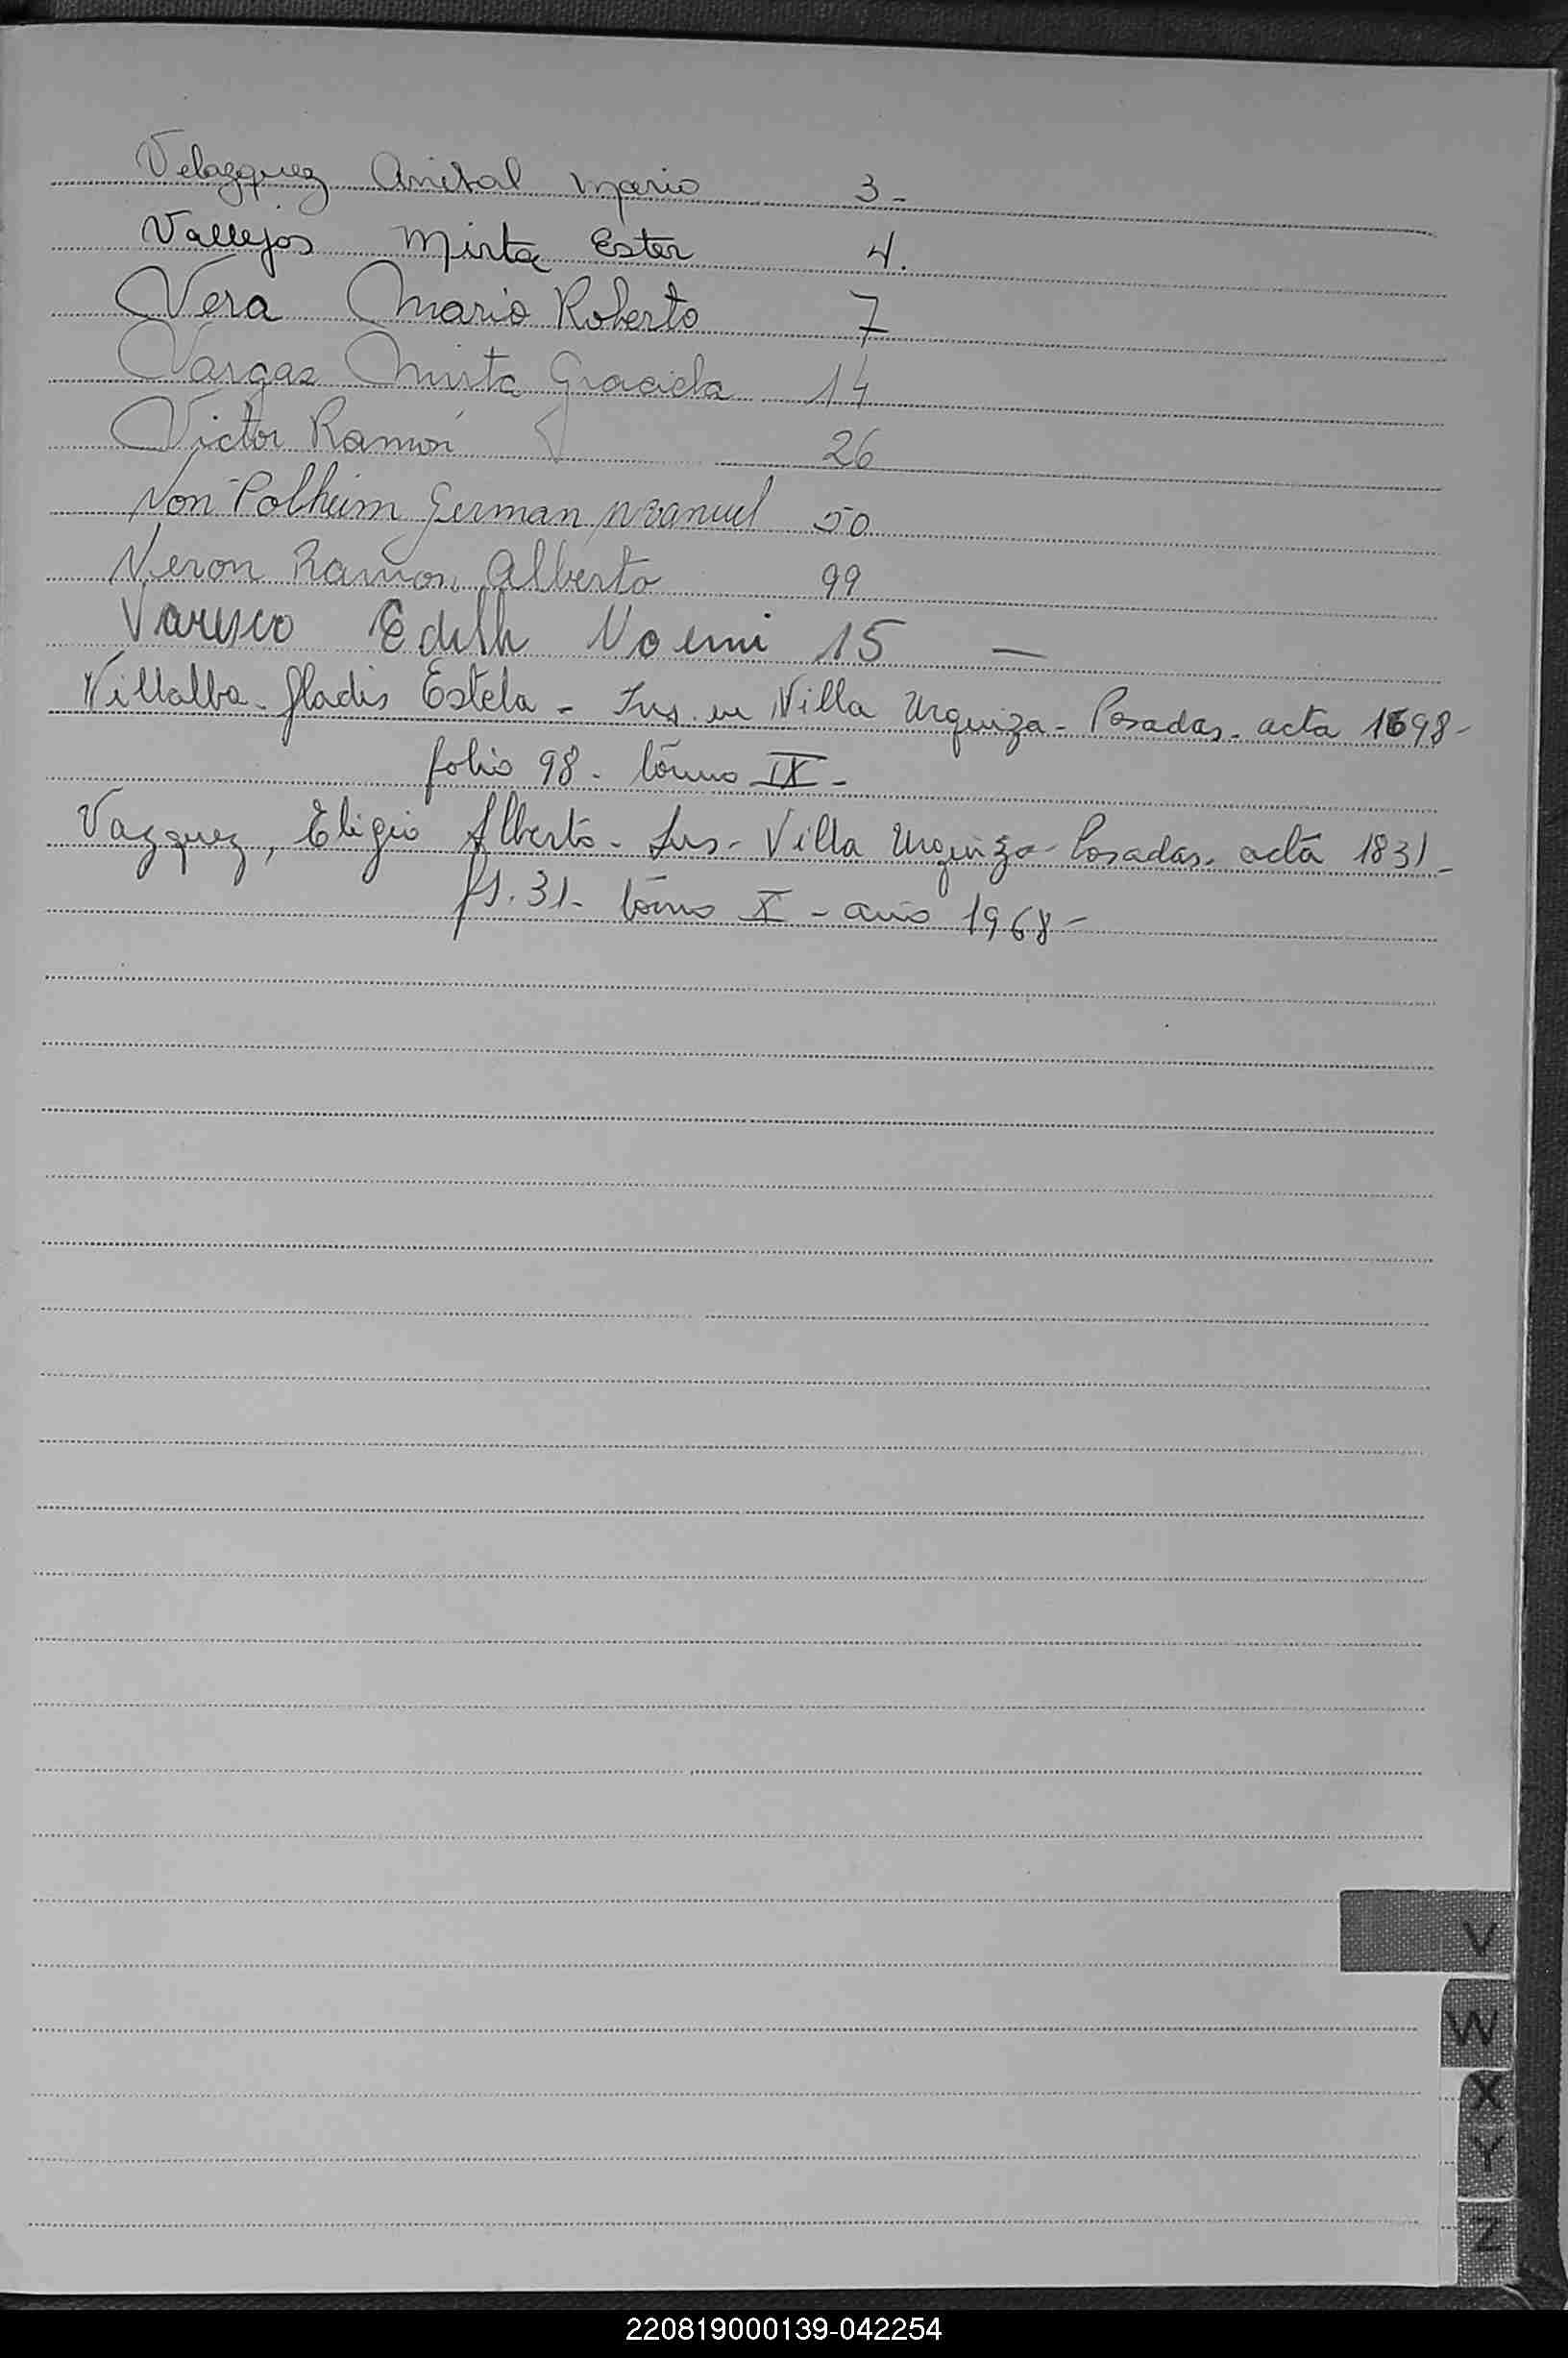 Velazquez Anibal Mario 3-
Vallejos Mirta Ester 4.
Vera Mario Roberto 7
Vargas Mirta Graciela 14
Victor Ramón 26
Von Polheim German Manuel 50
Veron Ramon Alberto 99
Varesco Edith Noemi 15 —
Villalba - Gladis Estela - Ins. en Villa Urquiza - Posadas - acta 1698-
folio 98 - tómo IX -
Vazquez, Eligio Alberto - Ins - Villa Urquiza - Posadas - acta 1831-
fs. 31 - tómo X - año 1968 -
V
W
X
Y
Z
220819000139-042254